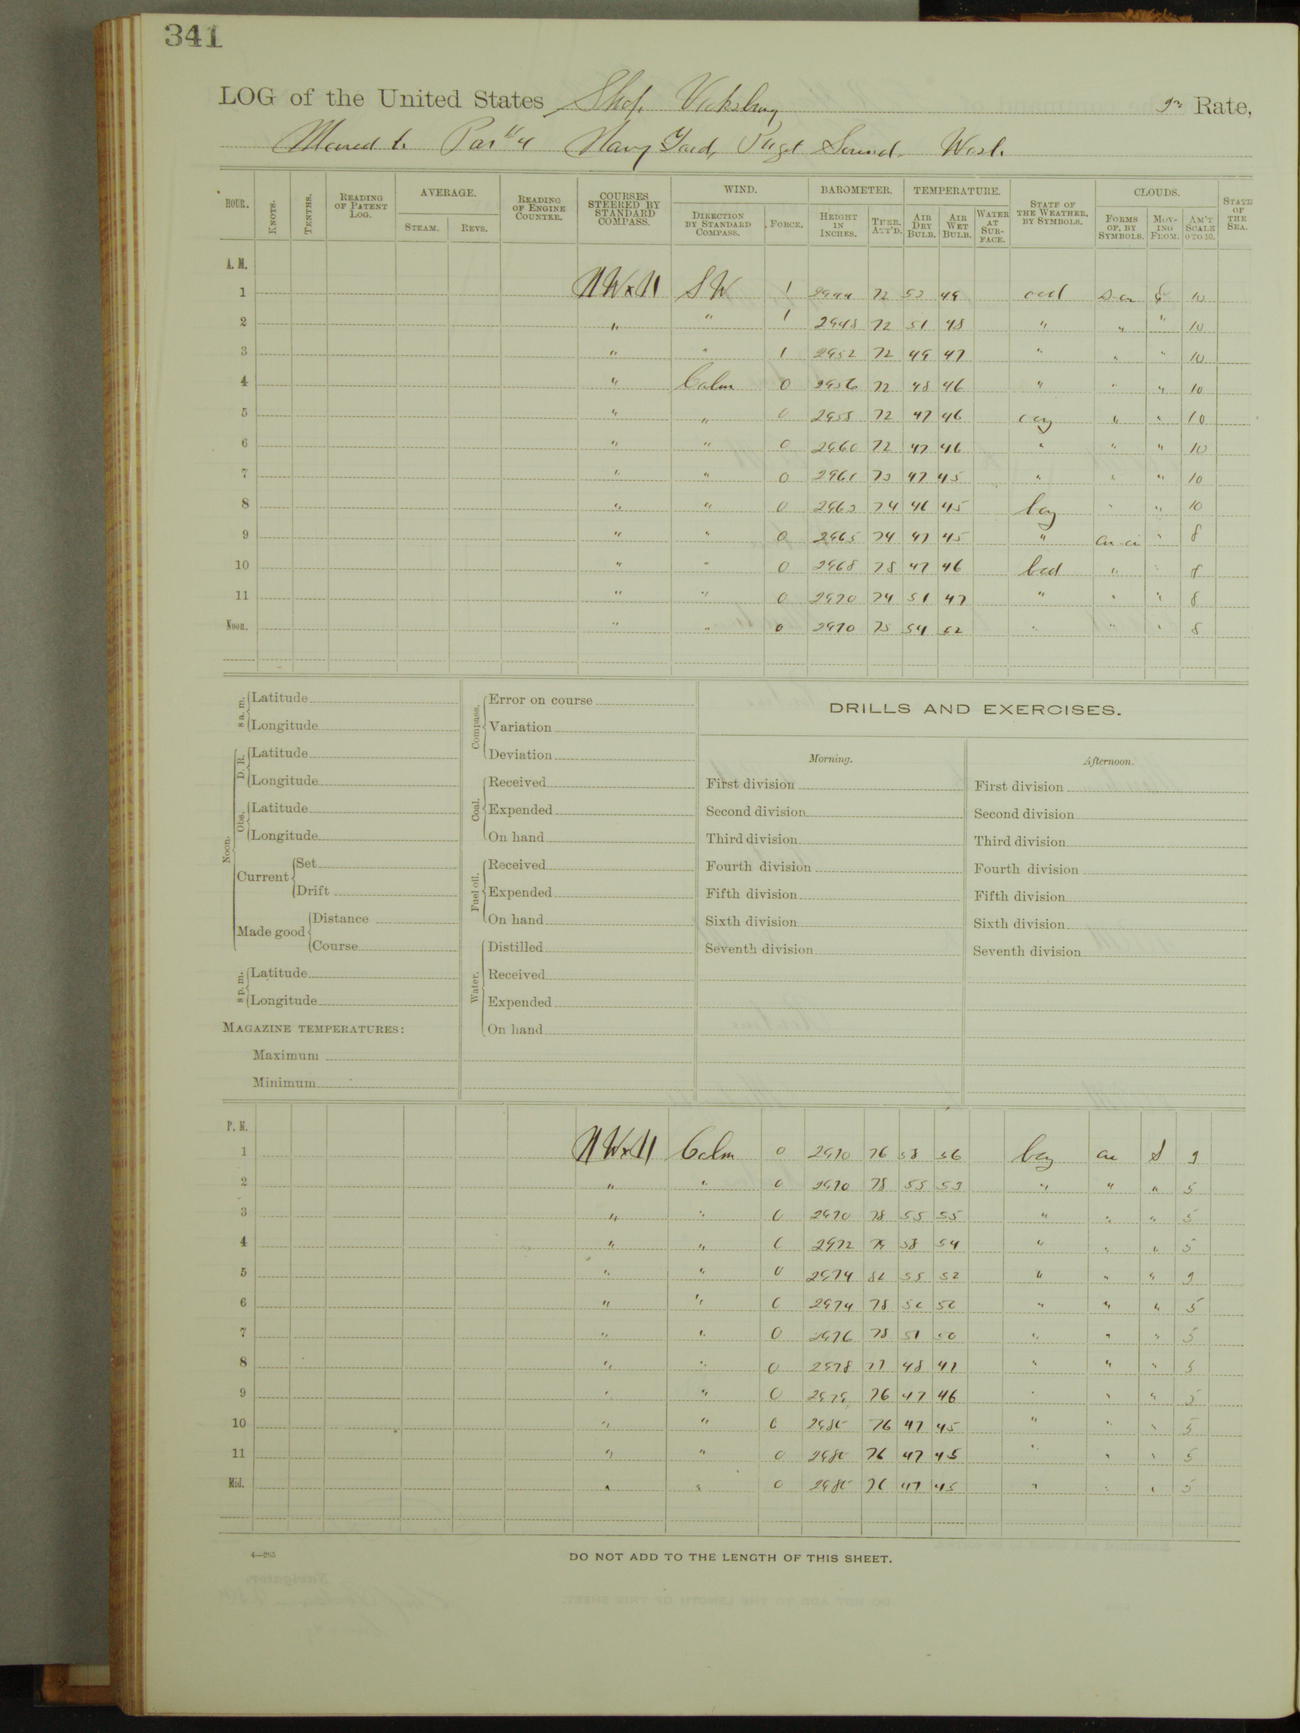 341
LOG of the United States Ship Vicksburg, Rate,
Moored to Navy Yard, Puget Sound. Wash.
HOUR. KNOTS. TENTHS. READING OF PATENT LOG. AVERAGE. STEAM. REVS. READING OF ENGINE COUNTER. COURSES STEERED BY STANDARD COMPASS. WIND. DIRECTION BY STANDARD COMPASS. FORCE. BAROMETER. HEIGHT IN INCHES. THER. ATT'D. TEMPERATURE. AIR DRY BULB. AIR WET BULB. WATER AT SURFACE. STATE OF THE WEATHER, BY SYMBOLS. CLOUDS. FORMS OF, BY SYMBOLS. MOVING FROM. AM'T SCALE 0 TO 10. STATE OF THE SEA.
A. M.
1 NWxN SW 1 2944 72 49 10
2 " " 1 2948 72 51 48 " " " 10
3 " " 1 2952 72 49 47 " " " 10
4 " Calm 0 2956 72 48 46 " " " 10
5 " " 0 2958 72 47 46 " " 10
6 " " 0 2960 72 47 46 " " " 10
7 " " 0 2961 47 45 " " " 10
8 " " 0 74 46 45 bcg " " 10
9 " " 0 2965 74 47 45 " cu ci " 8
10 " " 0 2968 78 47 46 bcd " " 8
11 " " 0 2970 74 51 47 " " " 8
Noon. " " 0 2970 75 54 52 " " " 8
8 a. m. Latitude
Longitude
Noon. D. R. Latitude
Longitude
Obs. Latitude
Longitude
Current Set
Drift
Made good Distance
Course
8 p. m. Latitude
Longitude
MAGAZINE TEMPERATURES:
Maximum
Minimum
Compass. Error on course
Variation
Deviation
Coal. Received
Expended
On hand
Fuel oil. Received
Expended
On hand
Water. Distilled
Received
Expended
On hand
DRILLS AND EXERCISES.
Morning.
First division
Second division
Third division
Fourth division
Fifth division
Sixth division
Seventh division
Afternoon.
First division
Second division
Third division
Fourth division
Fifth division
Sixth division
Seventh division
P. M.
1 NWxN Calm 0 2970 76 58 56 bcg cu S
2 " " 0 2970 78 55 53 " " " 5
3 " " 0 2970 78 55 55 " " " 5
4 " " 0 2972 58 54 " " " 5
5 " " 0 2974 55 52 " " "
6 " " 0 2974 78 " " " 5
7 " " 0 2976 78 51 50 " " " 5
8 " " 0 2978 77 48 47 " " " 5
9 " " 0 2979 76 47 46 " " " 5
10 " " 0 2980 76 47 45 " " " 5
11 " " 0 2980 76 47 45 " " " 5
Mid. " " 0 2980 76 47 45 " " " 5
4—265
DO NOT ADD TO THE LENGTH OF THIS SHEET.